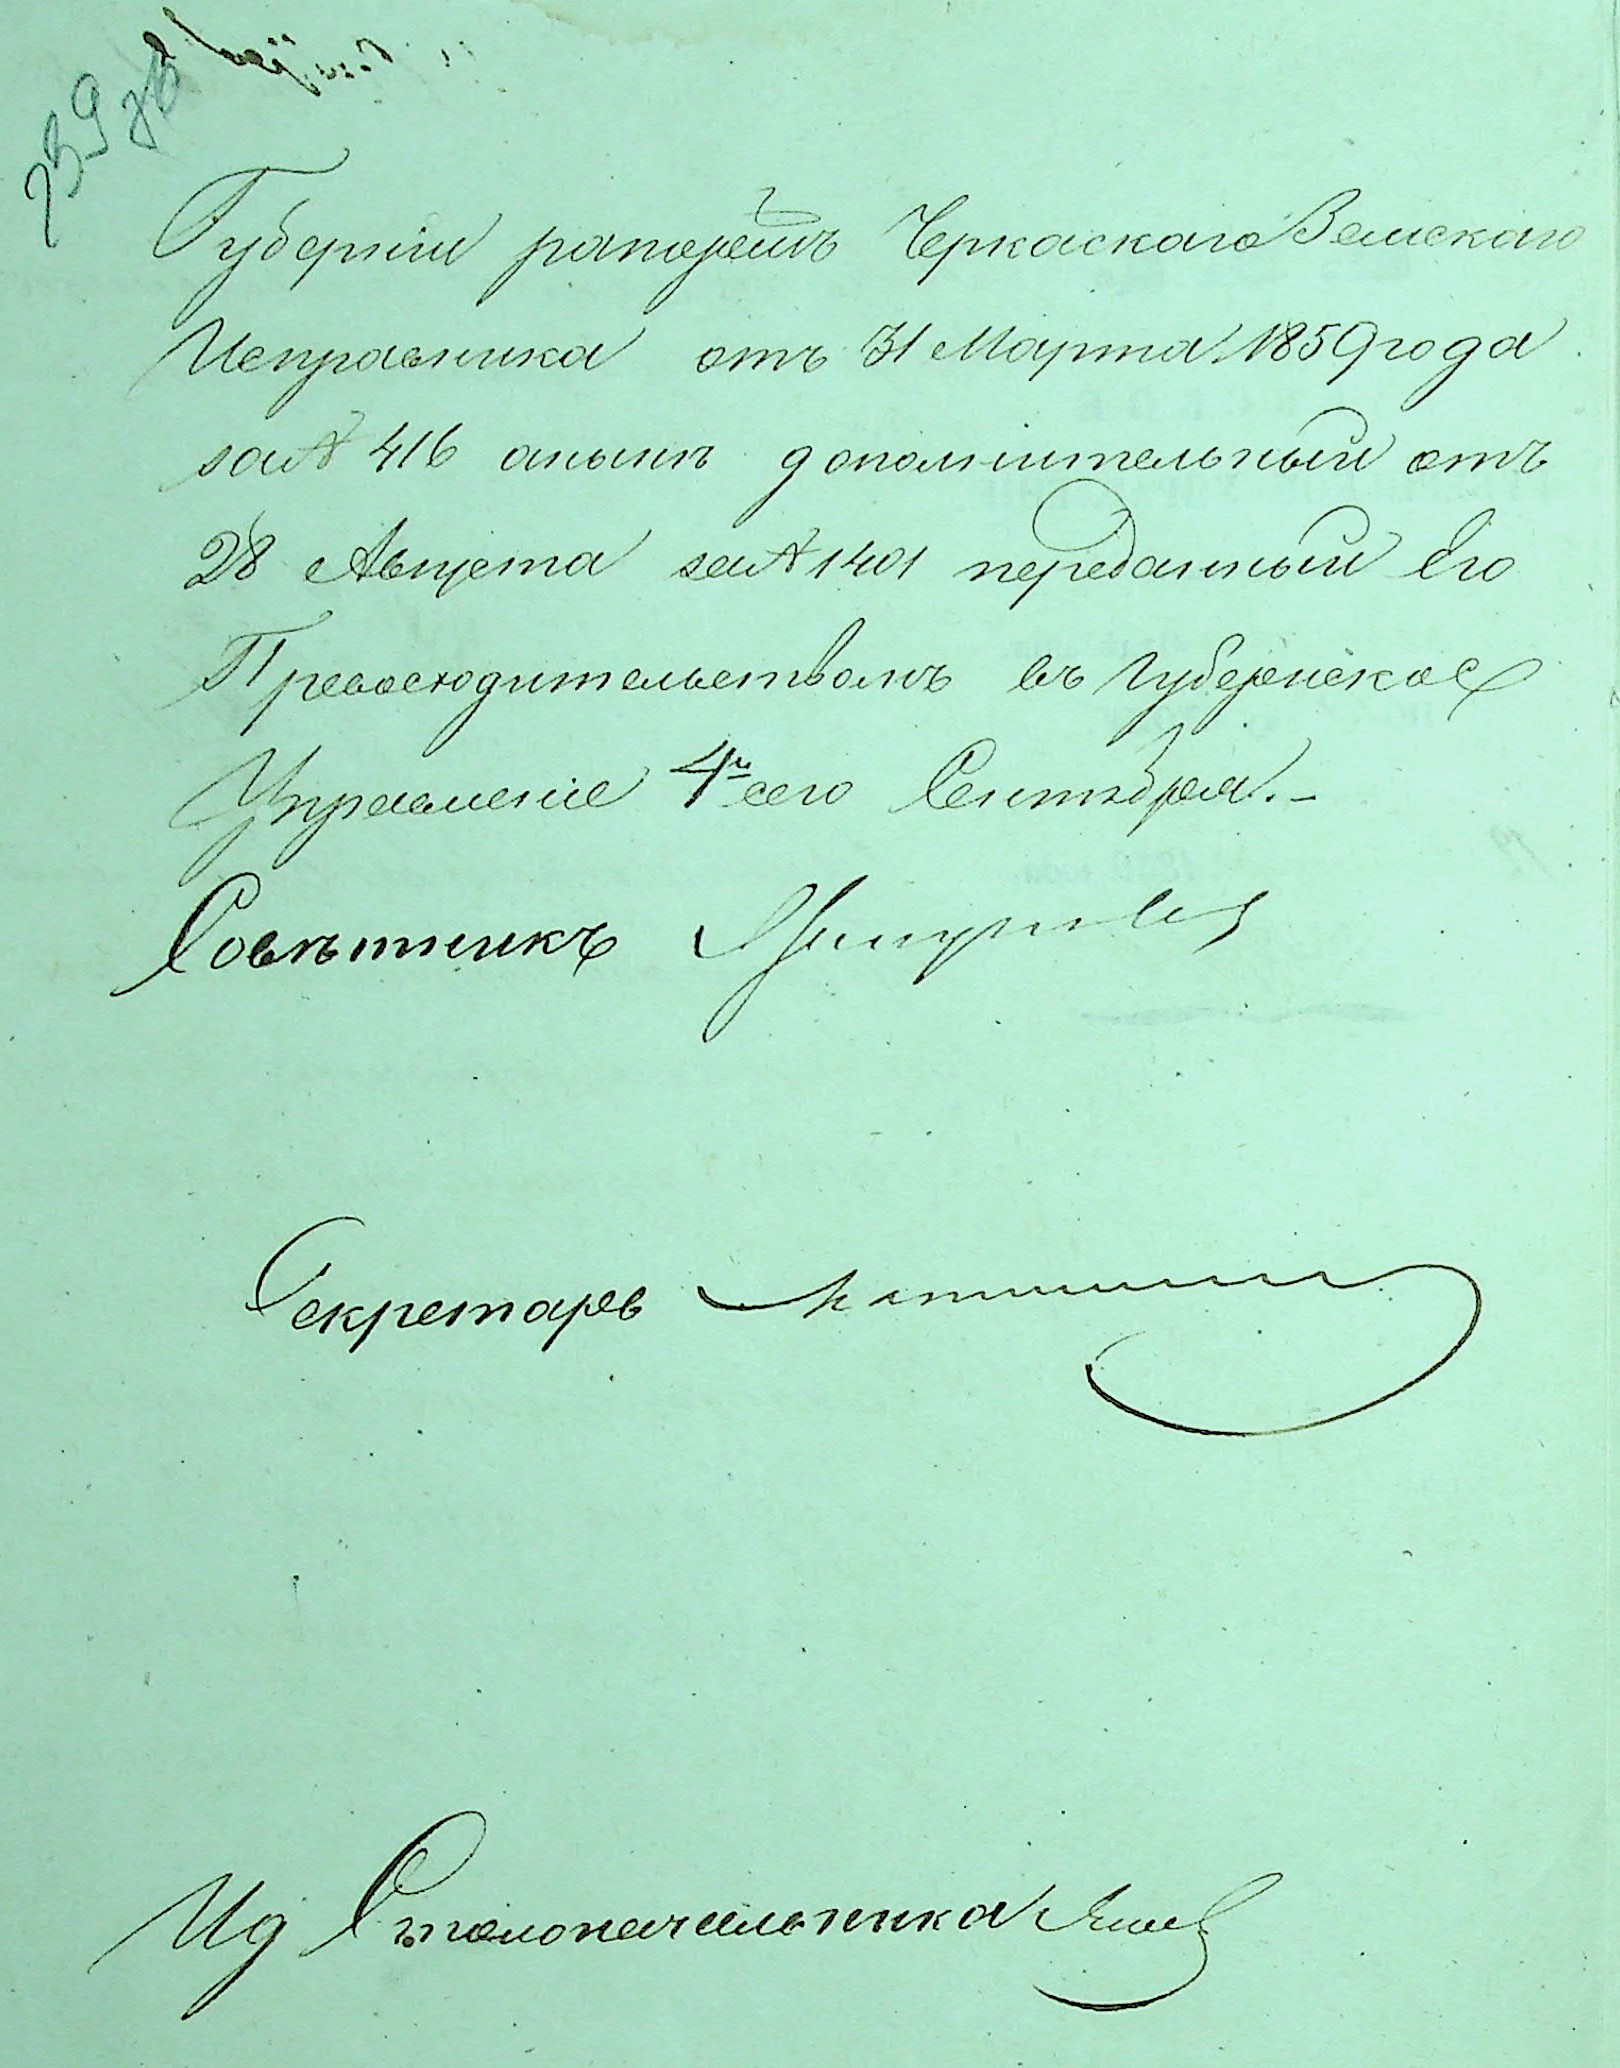 239 об
Губерніи рапортъ Черкаскаго Земскаго
Исправника отъ 31 Марта 1859 года
за № 416 а нынѣ дополнительный отъ
28 Августа за № 1401 переданный Его
Превосходительствомъ въ Губернское
Управленіе 4го сего Сентября. –
Совѣтникъ
Секретарь
Ид Столоначальника